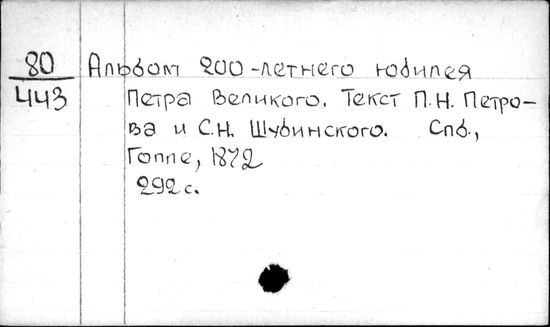 80 Альбом 200-летнего юбилея
443 Петра Великого. Текст П.Н. Петро-
ва и С.Н. Шубинского. Спб.,
Гоппе, 1872
292 с.